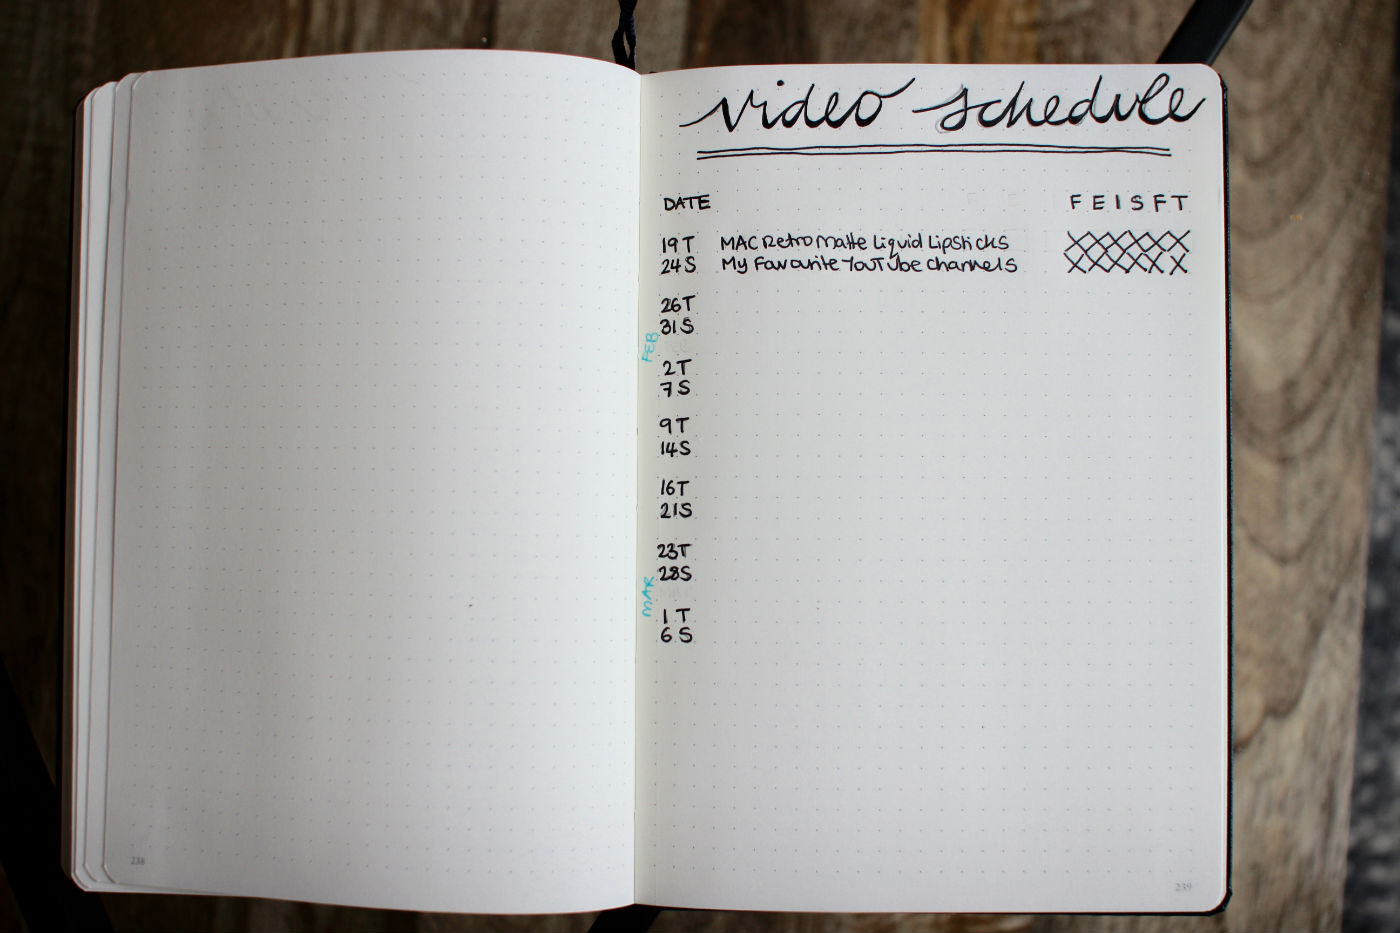 video schedule
DATE F E I S F T
19 T MAC Retro Matte Liquid Lipsticks XXXXXX
24 S My Favourite YouTube Channels XXXXXX
26 T
31 S
FEB
2 T
7 S
9 T
14 S
16 T
21 S
23 T
28 S
MAR
1 T
6 S
238
239